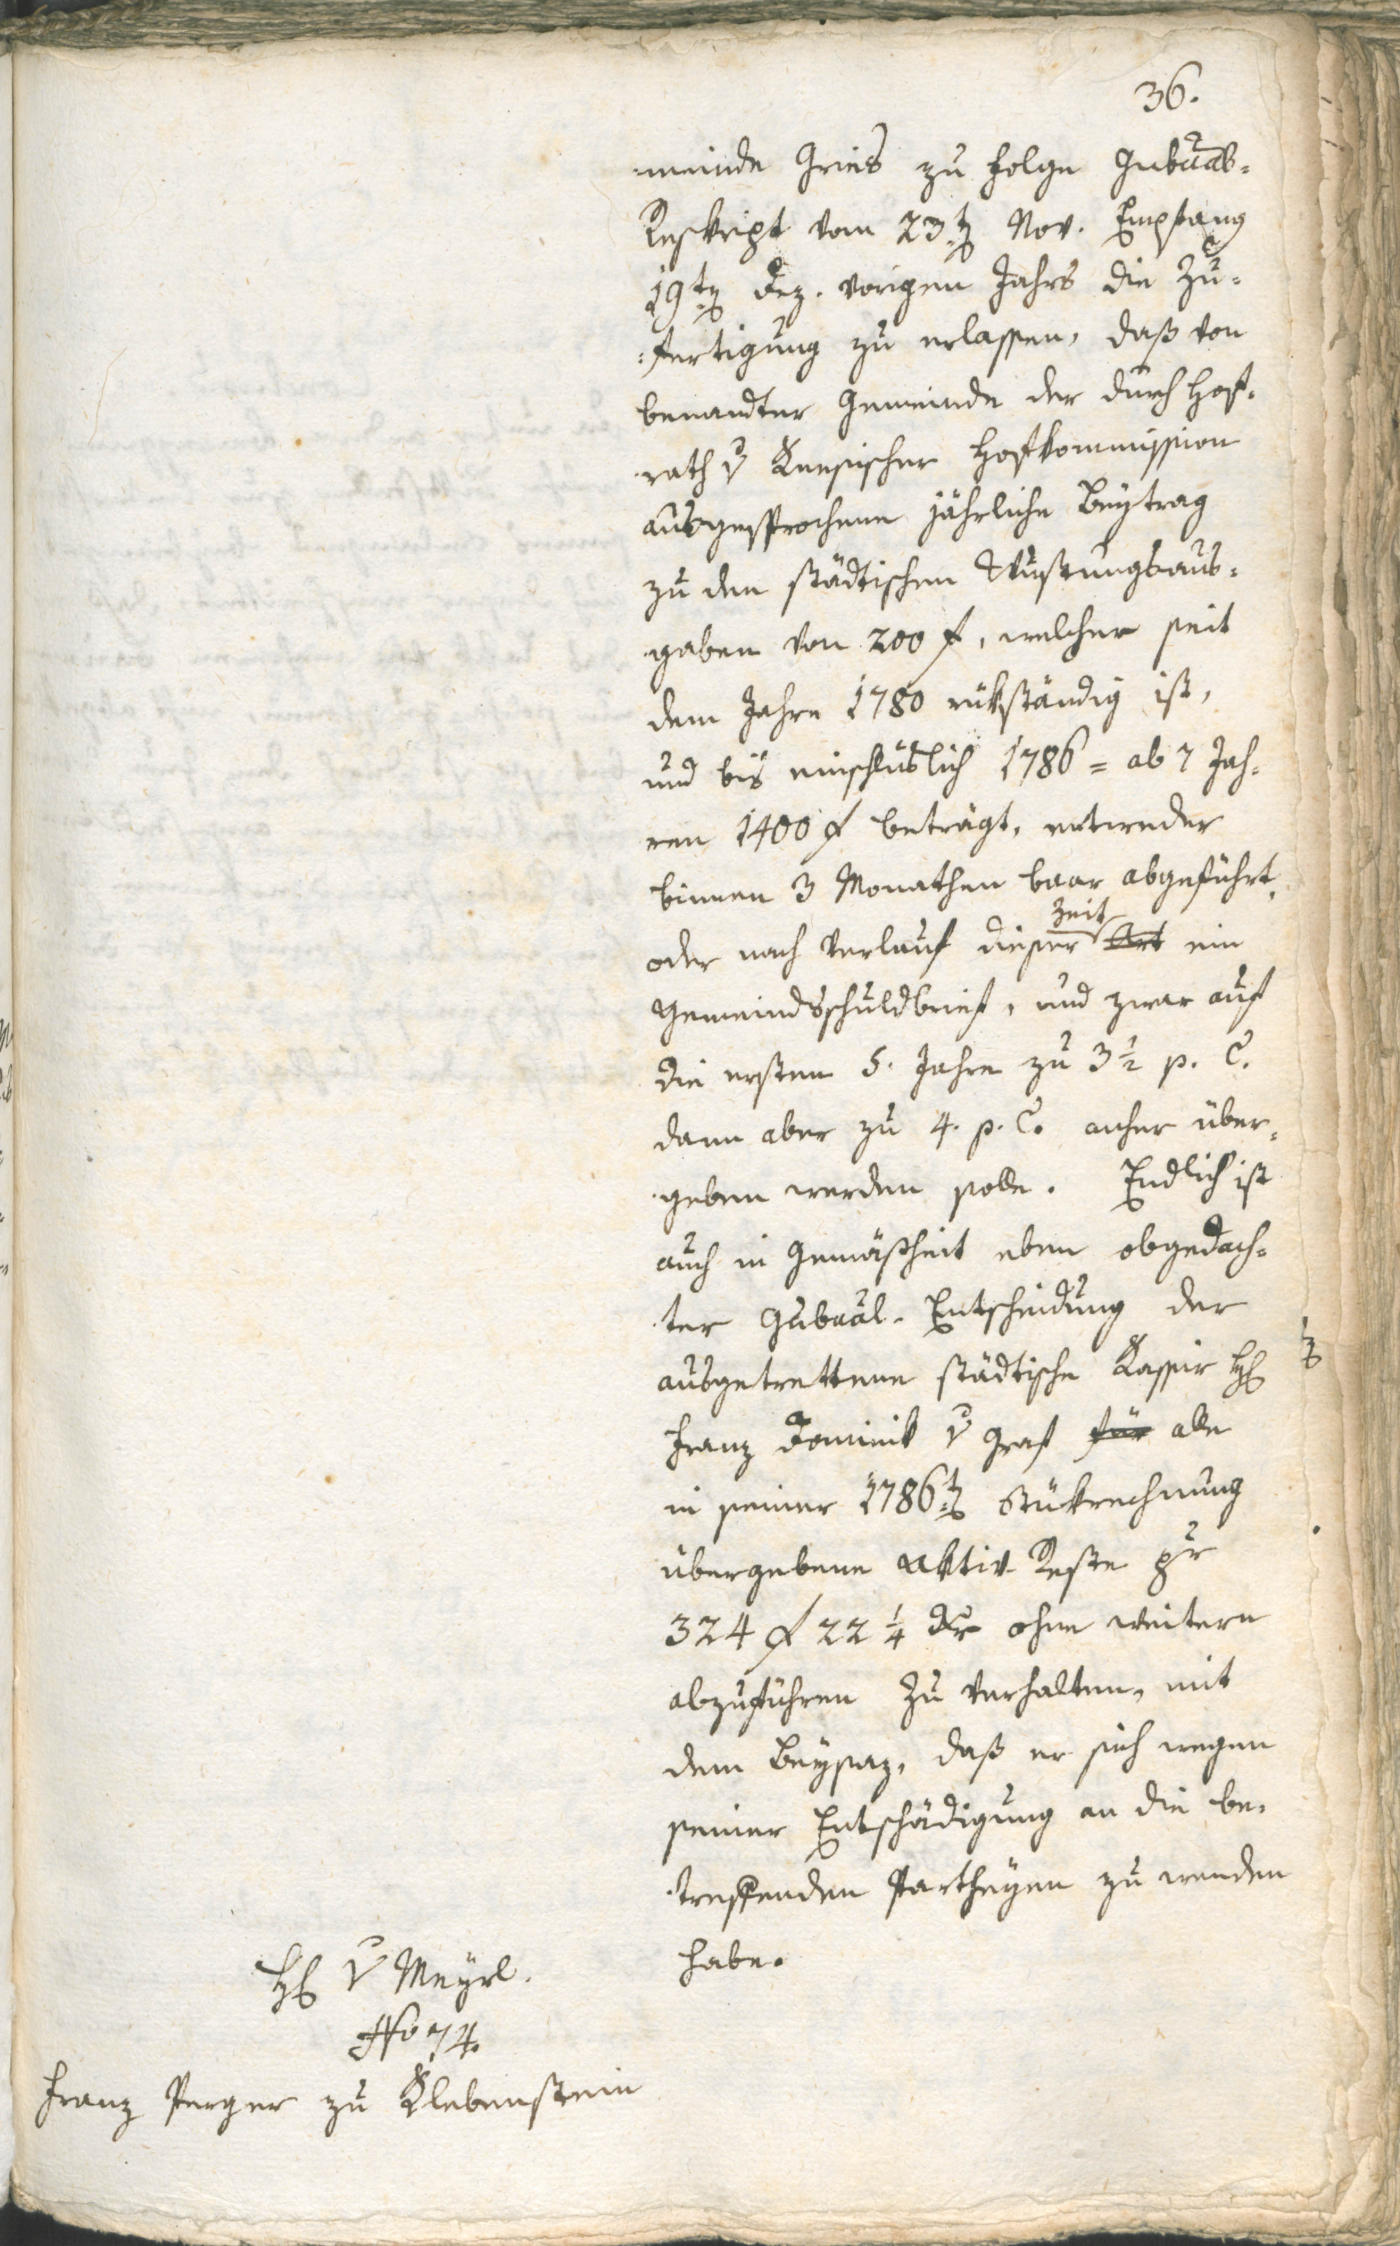 36.
meinde Gries zu folge Gubaal-
Reskript vom 23t Nov. Empfang
19ten Dez. vorigen Jahrs die Zu-
fertigung zu erlassen, daß von
benandter Gemeinde der durch Hof-
rath v Kees'ischer Hofkommission
ausgesprochene jährliche Beytrag
zu den städtischen Rüstungsaus-
gaben von 200 f, welcher seit
dem Jahre 1780 rükständig ist,
und bis einschlüslich 1786 = ab 7 Jah-
ren 1400 f beträgt, entweder
binnen 3 Monathen baar abgeführt,
oder nach Verlauf dieser Zeit ein
Gemeindsschuldbrief, und zwar auf
die ersten 5. Jahre zu 3 1/2 p. C.
dann aber zu 4. p. C. anher über-
geben werden solle. Endlich ist
auch in Gemäßheit eben obgedach-
ter Gubaal-Entscheidung der
ausgetrettene städtische Kassir H
Franz Dominik v Graf für alle
in seiner 1786t Stükrechnung
übergebene Aktiv-Reste pr
324 f 22 1/4 Kr ohne weitern
abzuführen zu verhalten, mit
dem Beysaz, daß er sich wegen
seiner Entschädigung an die be-
treffenden Partheyen zu wenden
habe.
H v Meyrl.
No 74.
Franz Perger zu Klebenstein